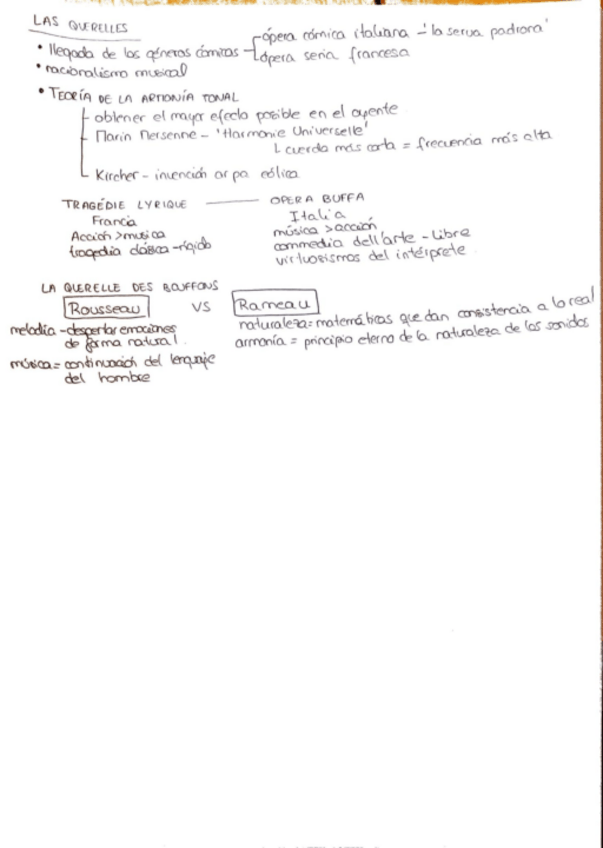 LAS QUERELLES
• llegada de los géneros cómicos
ópera cómica italiana - 'la serva padrona'
ópera seria francesa
• racionalismo musical
• TEORÍA DE LA ARMONÍA TONAL
- obtener el mayor efecto posible en el oyente
- Marin Mersenne - 'Harmonie Universelle'
cuerda más corta = frecuencia más alta
- Kircher - invención arpa eólica
TRAGÉDIE LYRIQUE —— OPERA BUFFA
Francia
Acción > música
tragedia clásica - rígido
Italia
música > acción
commedia dell'arte - Libre
virtuosismos del intérprete
LA QUERELLE DES BOUFFONS
Rousseau VS Rameau
melodía - despertar emociones
de forma natural.
música = continuación del lenguaje
del hombre
naturaleza = matemáticas que dan consistencia a lo real
armonía = principio eterno de la naturaleza de los sonidos